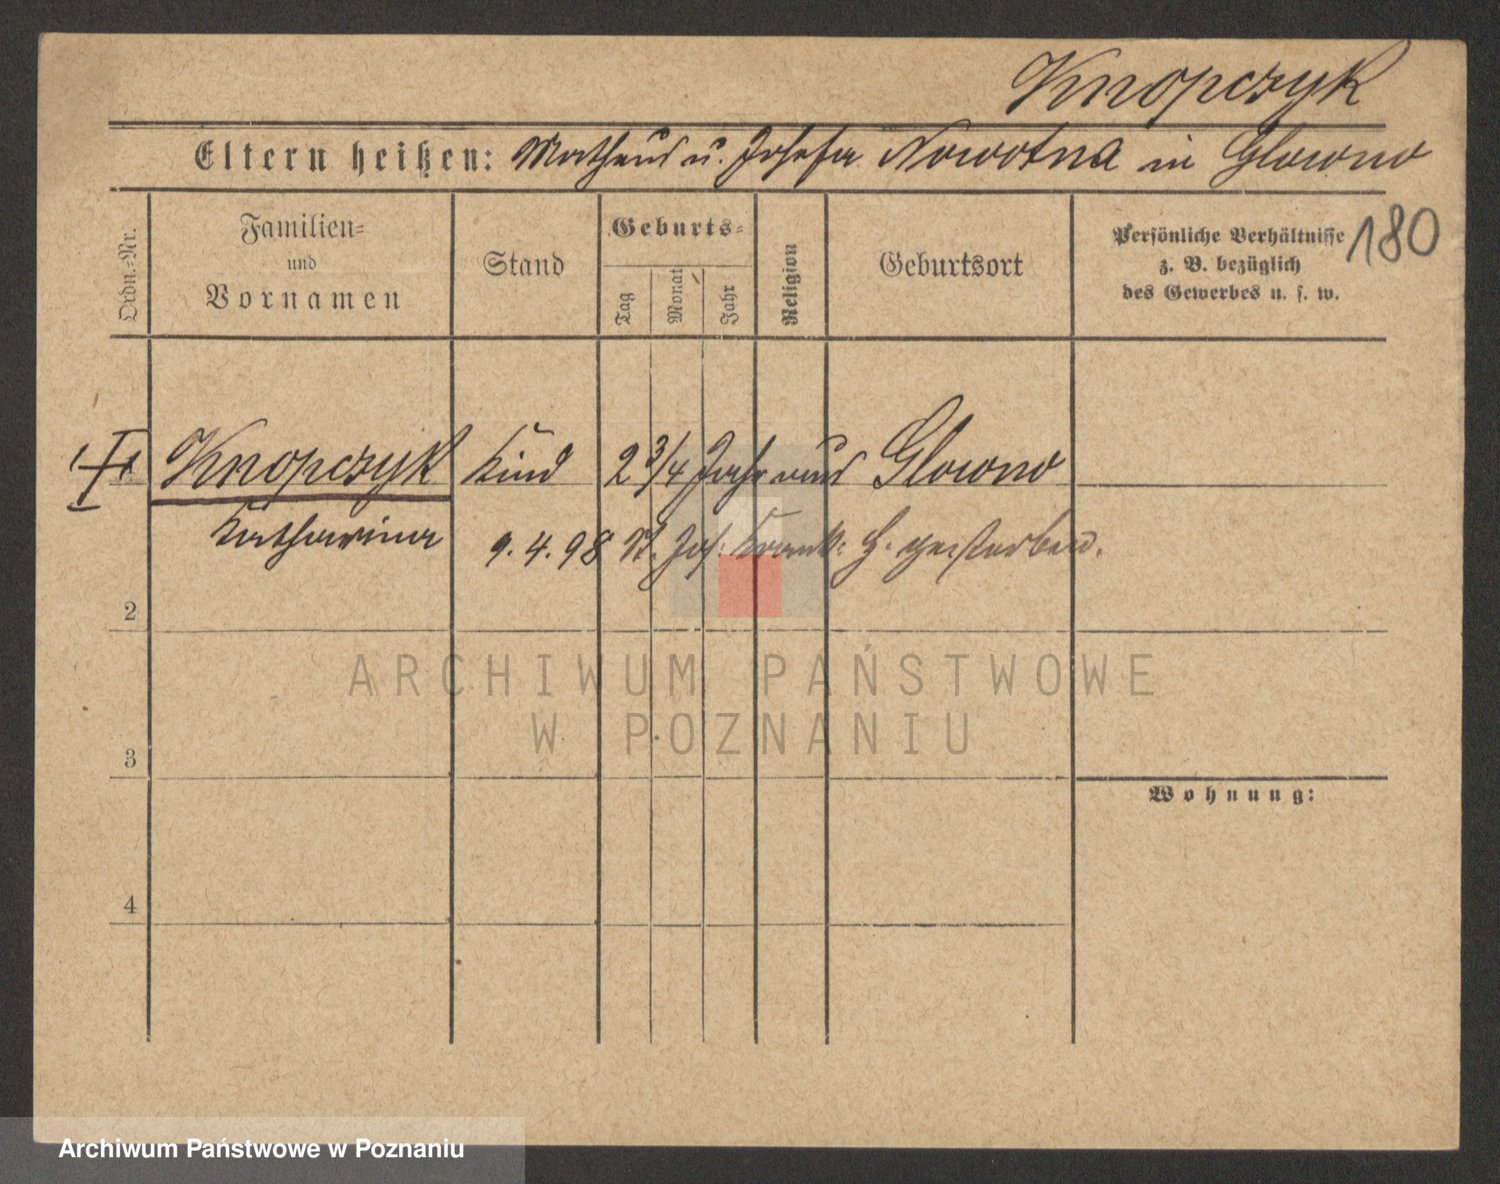 Knopczyk
Eltern heißen: Matheus u. Josefa Nowotna in Glowno
Ordn.-Nr.
Familien-
und
Vornamen
Stand
Geburts-
Tag
Monat
Jahr
Religion
Geburtsort
Persönliche Verhältnisse
z. B. bezüglich
des Gewerbes u. s. w.
180
Knopczyk Kind 2 3/4 Jahr aus Glowno
Katharina 9. 4. 98 St. Jos. Krank. H. gestorben.
2
3
Wohnung:
4
ARCHIWUM PAŃSTWOWE
W POZNANIU
Archiwum Państwowe w Poznaniu